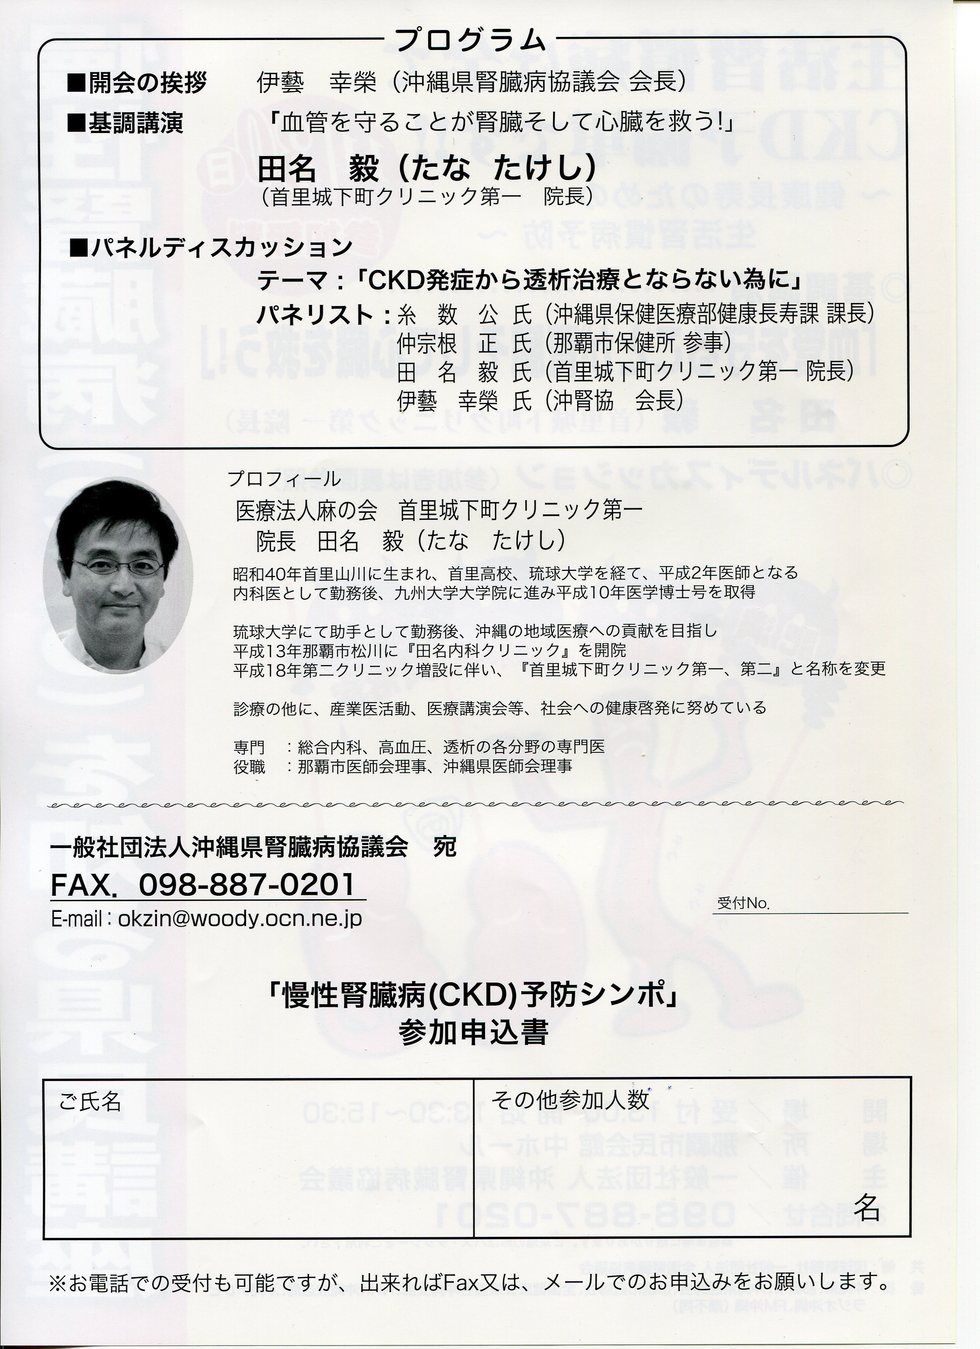 プログラム
■開会の挨拶　伊藝　幸榮（沖縄県腎臓病協議会 会長）
■基調講演　「血管を守ることが腎臓そして心臓を救う!」
田名　毅（たな たけし）
（首里城下町クリニック第一　院長）
■パネルディスカッション
テーマ：「CKD発症から透析治療とならない為に」
パネリスト：糸　数　公　氏（沖縄県保健医療部健康長寿課 課長）
仲宗根　正　氏（那覇市保健所 参事）
田　名　毅　氏（首里城下町クリニック第一 院長）
伊藝　幸榮　氏（沖腎協　会長）
プロフィール
医療法人麻の会　首里城下町クリニック第一
院長　田名　毅（たな　たけし）
昭和40年首里山川に生まれ、首里高校、琉球大学を経て、平成2年医師となる
内科医として勤務後、九州大学大学院に進み平成10年医学博士号を取得
琉球大学にて助手として勤務後、沖縄の地域医療への貢献を目指し
平成13年那覇市松川に『田名内科クリニック』を開院
平成18年第二クリニック増設に伴い、『首里城下町クリニック第一、第二』と名称を変更
診療の他に、産業医活動、医療講演会等、社会への健康啓発に努めている
専門　：総合内科、高血圧、透析の各分野の専門医
役職　：那覇市医師会理事、沖縄県医師会理事
一般社団法人沖縄県腎臓病協議会　宛
FAX．098-887-0201
E-mail：okzin@woody.ocn.ne.jp
受付No.
「慢性腎臓病(CKD)予防シンポ」
参加申込書
ご氏名
その他参加人数
名
※お電話での受付も可能ですが、出来ればFax又は、メールでのお申込みをお願いします。